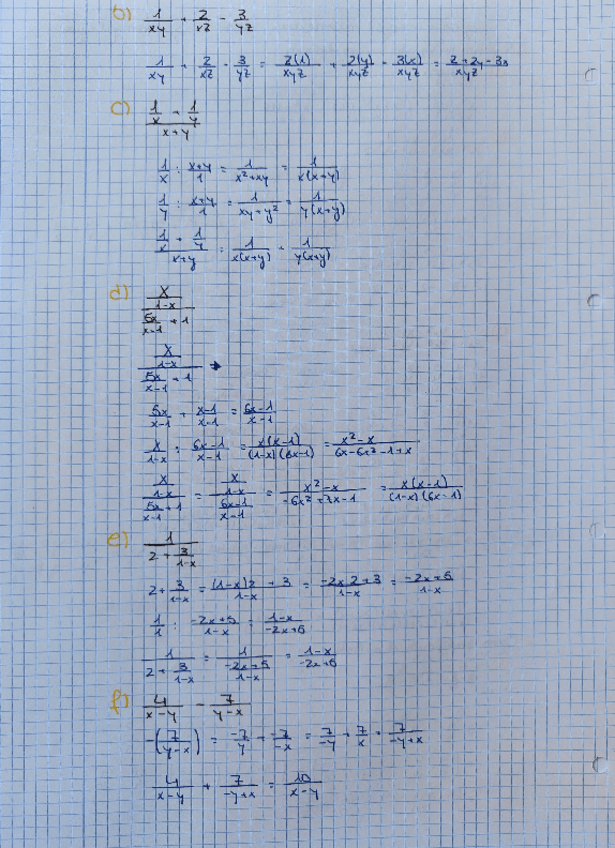 b) 1/xy + 2/xz - 3/yz
1/xy + 2/xz - 3/yz = z(1)/xyz + 2(y)/xyz - 3(x)/xyz = z+2y-3x/xyz
c) (1/x + 1/y)/(x+y)
1/x : x+y/1 = 1/x²+xy = 1/x(x+y)
1/y : x+y/1 = 1/xy+y² = 1/y(x+y)
(1/x + 1/y)/(x+y) = 1/x(x+y) + 1/y(x+y)
d) (x/1-x)/(5x/x-1 + 1)
(x/1-x)/(5x/x-1 + 1) →
5x/x-1 + x-1/x-1 = 6x-1/x-1
x/1-x : 6x-1/x-1 = x(x-1)/(1-x)(6x-1) = x²-x/6x-6x²-1+x
(x/1-x)/(5x/x-1 + 1) = (x/1-x)/(6x-1/x-1) = x²-x/-6x²+7x-1 = x(x-1)/(1-x)(6x-1)
e) 1/(2 + 3/1-x)
2 + 3/1-x = (1-x)2 + 3/1-x = -2x+2+3/1-x = -2x+5/1-x
1/1 : -2x+5/1-x = 1-x/-2x+5
1/(2 + 3/1-x) = 1/(-2x+5/1-x) = 1-x/-2x+5
f) 4/x-y - 7/y-x
-(7/y-x) = -7/y + -7/-x = 7/-y + 7/x = 7/-y+x
4/x-y + 7/-y+x = 10/x-y